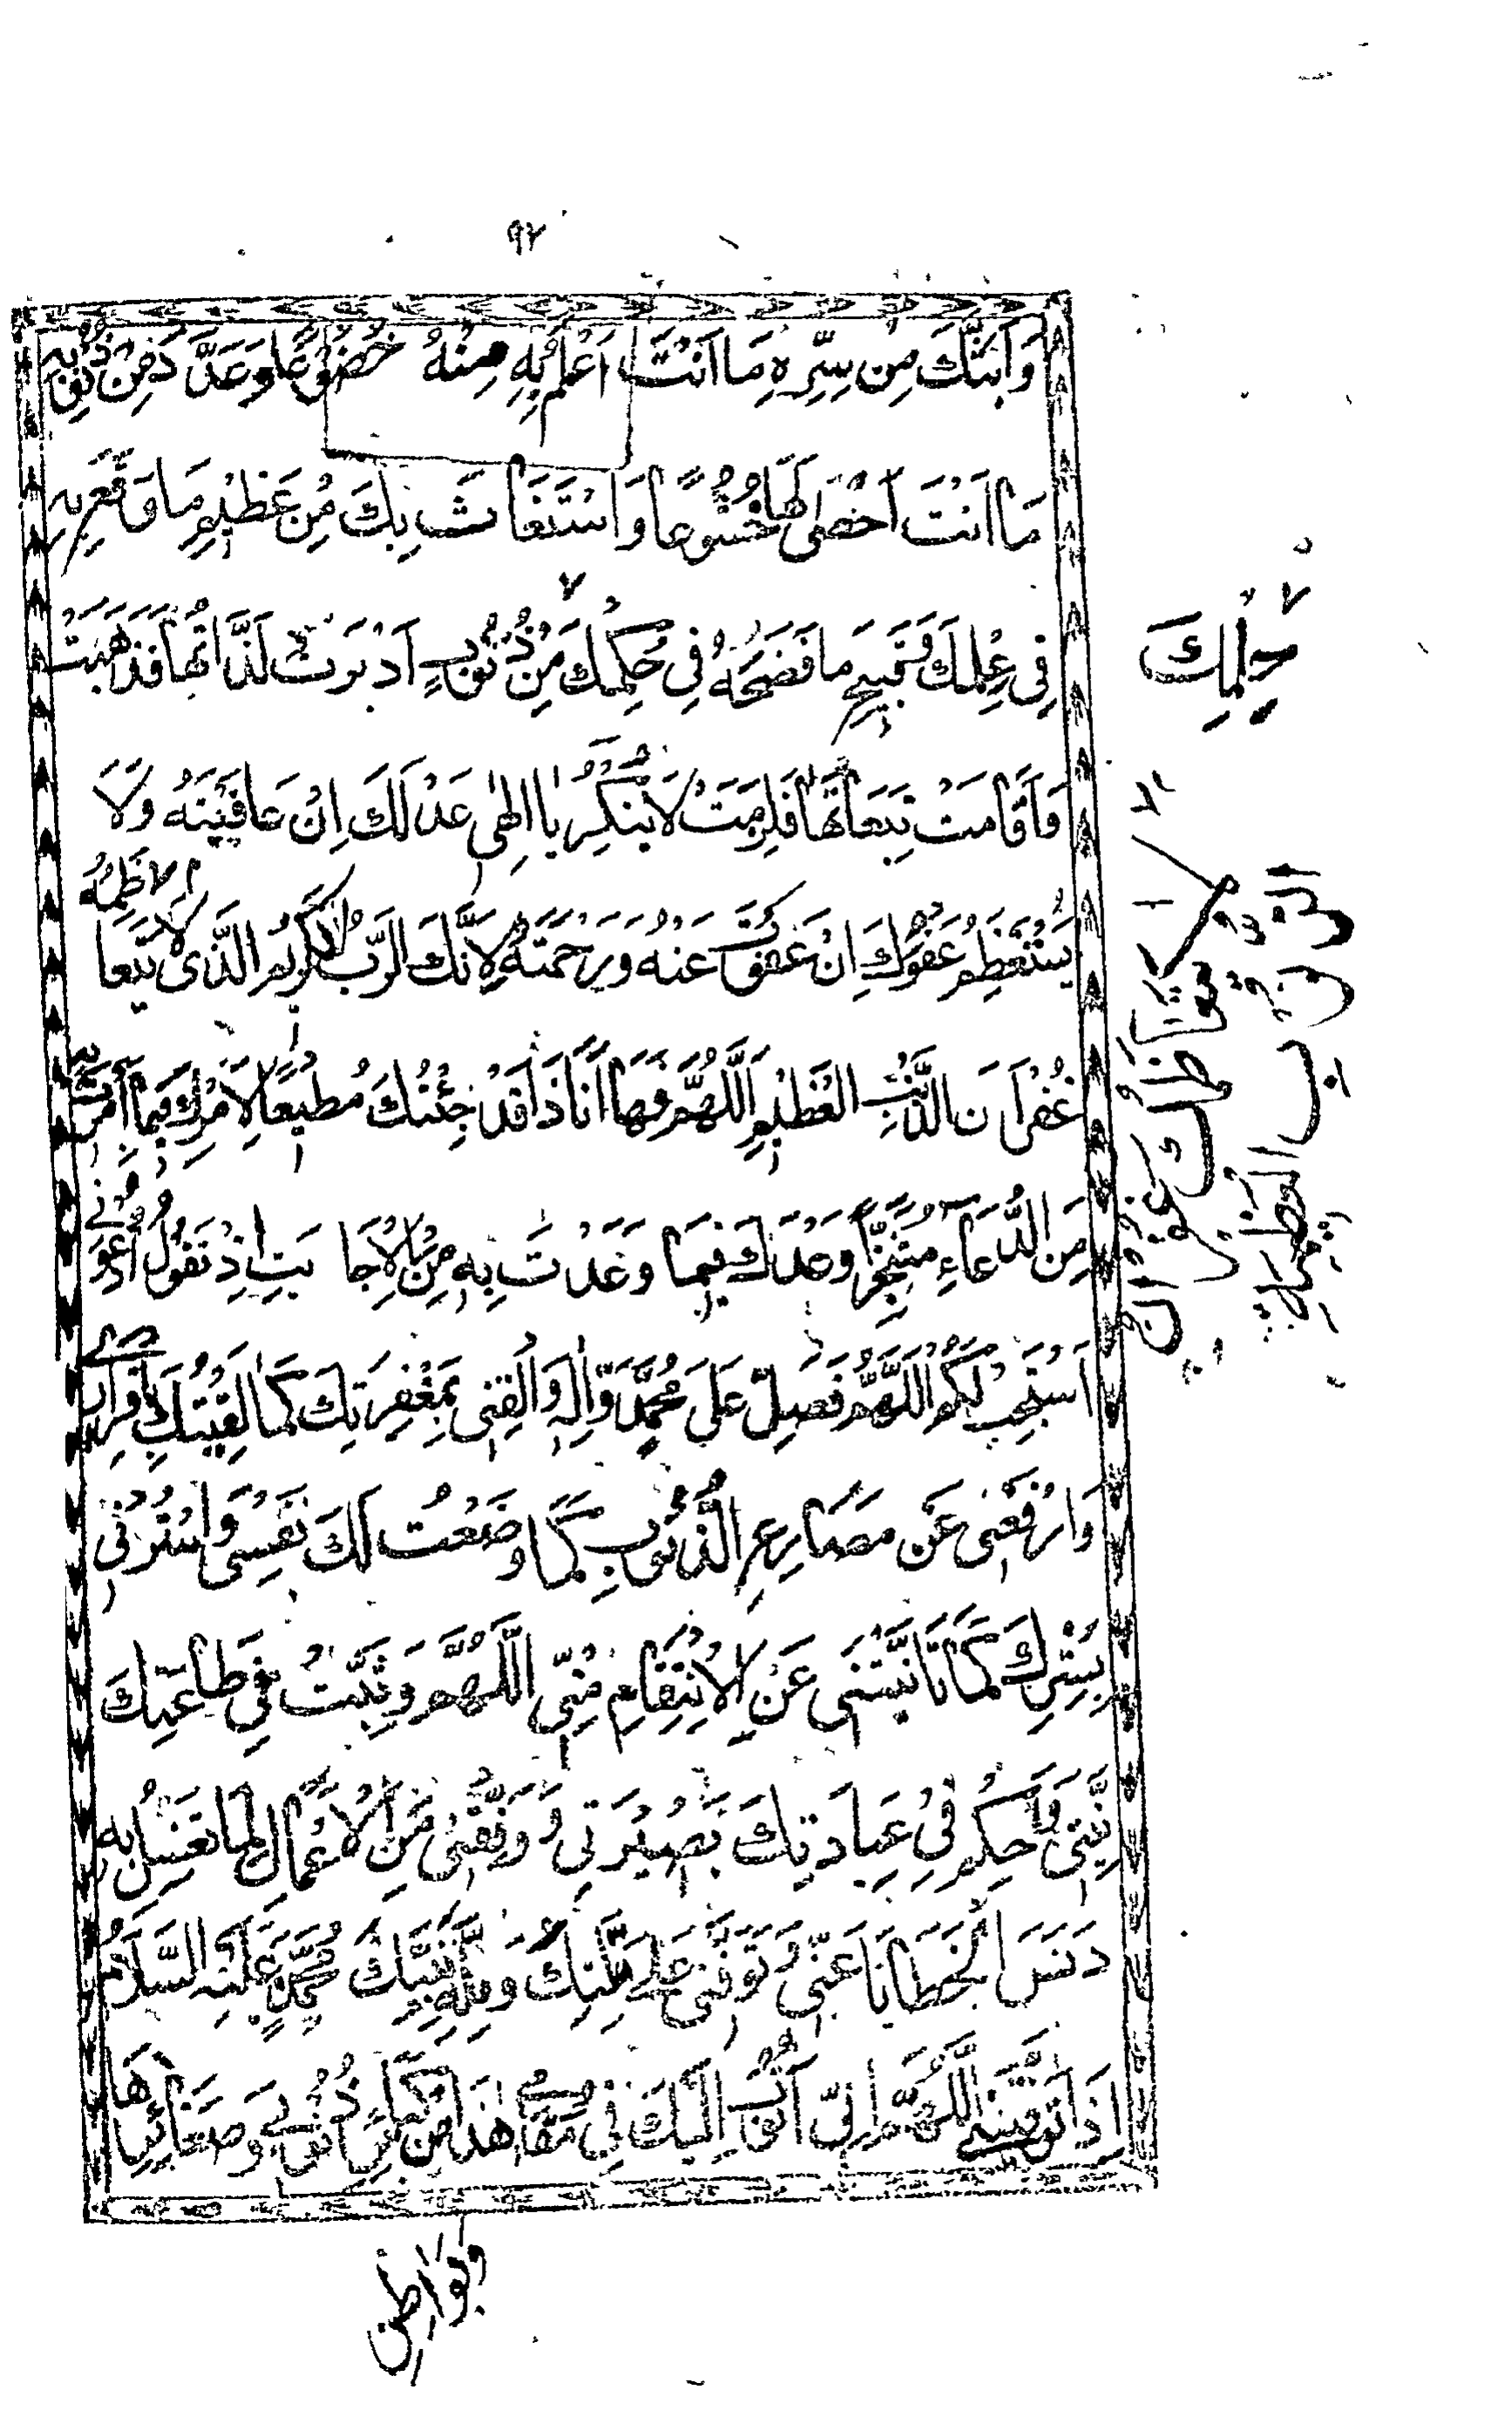 ٩٢
وَاَبَثَّكَ مِنْ سِرِّهِ مَا اَنْتَ اَعْلَمُ بِهِ مِنْهُ خُضُوْعًا وَعَدَّدَ مِنْ ذُنُوْبِهِ
مَا اَنْتَ اَحْصٰى لَهَا خُشُوْعًا وَاسْتَغَاثَ بِكَ مِنْ عَظِيْمِ مَا وَقَعَ بِهِ
فِى عِلْمِكَ وَقَبِيْحِ مَا فَضَحَهُ فِى حُكْمِكَ مِنْ ذُنُوْبٍ اَدْبَرَتْ لَذَّاتُهَا فَذَهَبَتْ
حِلْمِكَ
وَاَقَامَتْ تَبِعَاتُهَا فَلَزِمَتْ لَا يُنْكِرُ يَا اِلٰهِى عَدْلَكَ اِنْ عَاقَبْتَهُ وَلَا
يَسْتَعْظِمُ عَفْوَكَ اِنْ عَفَوْتَ عَنْهُ وَرَحِمْتَهُ لِاَنَّكَ الرَّبُّ الْكَرِيْمُ الَّذِى لَا يَتَعَاظَمُهُ
غُفْرَانُ الذَّنْبِ الْعَظِيْمِ اَللّٰهُمَّ فَهَا اَنَا ذَا قَدْ جِئْتُكَ مُطِيْعًا لِاَمْرِكَ فِيْمَا اَمَرْتَ بِهِ
مِنَ الدُّعَاءِ مُتَنَجِّزًا وَعْدَكَ فِيْمَا وَعَدْتَ بِهِ مِنَ الْاِجَابَتِ اِذْ تَقُوْلُ اُدْعُوْنِى
اَسْتَجِبْ لَكُمْ اَللّٰهُمَّ فَصَلِّ عَلَى مُحَمَّدٍ وَّاٰلِهِ وَالْقَنِى بِمَغْفِرَتِكَ كَمَا لَقِيْتُكَ بِاِقْرَارِى
وَارْفَعْنِى عَنْ مَصَارِعِ الذُّنُوْبِ كَمَا وَضَعْتُ لَكَ نَفْسِى وَاسْتُرْنِى
بِسِتْرِكَ كَمَا تَاَنَّيْتَنِى عَنِ الْاِنْتِقَامِ مِنِّى اَللّٰهُمَّ وَثَبِّتْ فِى طَاعَتِكَ
نِيَّتِى وَاَحْكِمْ فِى عِبَادَتِكَ بَصِيْرَتِى وَوَفِّقْنِى مِنَ الْاَعْمَالِ لِمَا تَغْسِلُ بِهِ
دَنَسَ الْخَطَايَا عَنِّى وَتَوَفَّنِى عَلَى مِلَّتِكَ وَمِلَّةِ نَبِيِّكَ مُحَمَّدٍ عَلَيْهِ السَّلَامُ
اِذَا تَوَفَّيْتَنِى اَللّٰهُمَّ اِنِّى اَتُوْبُ اِلَيْكَ فِى مَقَامِى هٰذَا مِنْ كَبَائِرِ ذُنُوْبِى وَصَغَائِرِهَا
وبواطن